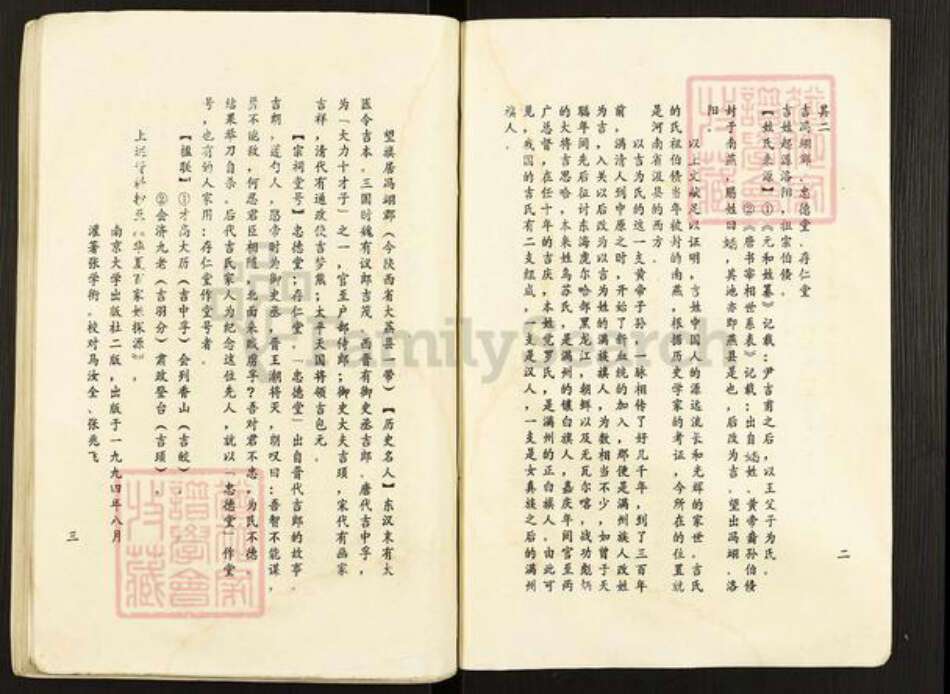 其二
吉冯翊郡、忠德堂、存仁堂
吉姓起源洛阳，祖宗伯倏
【姓氏来源】①《元和姓纂》记载：尹吉甫之后，以王父字为氏。
②《唐书宰相世系表》记载：出自姞姓、黄帝裔孙伯倏
封于南燕，赐姓曰姞，其地亦即燕县是也，后改为吉。望出冯翊、洛
阳。
以上文献足以证明，吉姓中国人的源远流长和光辉的家世。吉氏
的氏祖伯倏当年被封的南燕，根据历史学家的考证，今所在的位置就
是河南省汲县的西方。
以吉为氏的这一支黄帝子孙，一脉相传了好几千年，到了三百年
前，满清人到中原之时，开始了新血统的加入，那便是满州族人改姓
为吉，入关以后改为以吉为姓的满族旗人，为数相当不少，如曾于天
聪年间先后征讨东海虎尔哈部黑龙江，朝鲜以及无瓦尔喀，战功彪炳
的大将吉思哈，本来姓乌苏氏，是满州的镶白旗人，嘉庆年间官至两
广总督，在任十年的吉庆，本姓觉罗氏，是满州的正白旗人。由此可
见，我国的吉氏有二支组成，一支是汉人，一支是女真族之后的满州
旗人。
二
望族居冯翊郡（今陕西省大荔县一带）【历史名人】东汉末有太
医令吉本。三国时魏有议郎吉茂。西晋有御史丞吉郎。唐代吉中孚，
为「大力十才子」之一，官至户部侍郎；御史大夫吉顼，宋代有画家
吉祥，清代有通政使吉梦熊；太平天国将领吉包元。
【宗祠堂号】忠德堂；存仁堂。「忠德堂」出自晋代吉郎的故事。
吉朗，莲勺人，愍帝时为御史丞，晋王朝将灭，朗叹曰：吾智不能谋，
勇不能救，何忍君臣相随，北面来贼虏乎？吾对君不忠，为民不德
结果举刀自杀。后代吉氏家人为纪念这位先人，就以「忠德堂」作堂
号，也有的人家用：存仁堂作堂号者。
【楹联】①才高大历（吉中孚）会列香山（吉皎）。
②会济九老（吉羽分）肃政登台（吉顼）。
《华夏百家姓探源》
南京大学出版社二版，出版于一九九四年八月
灌著张学衔。校对马汝全、张兆飞
三
FamilySearch